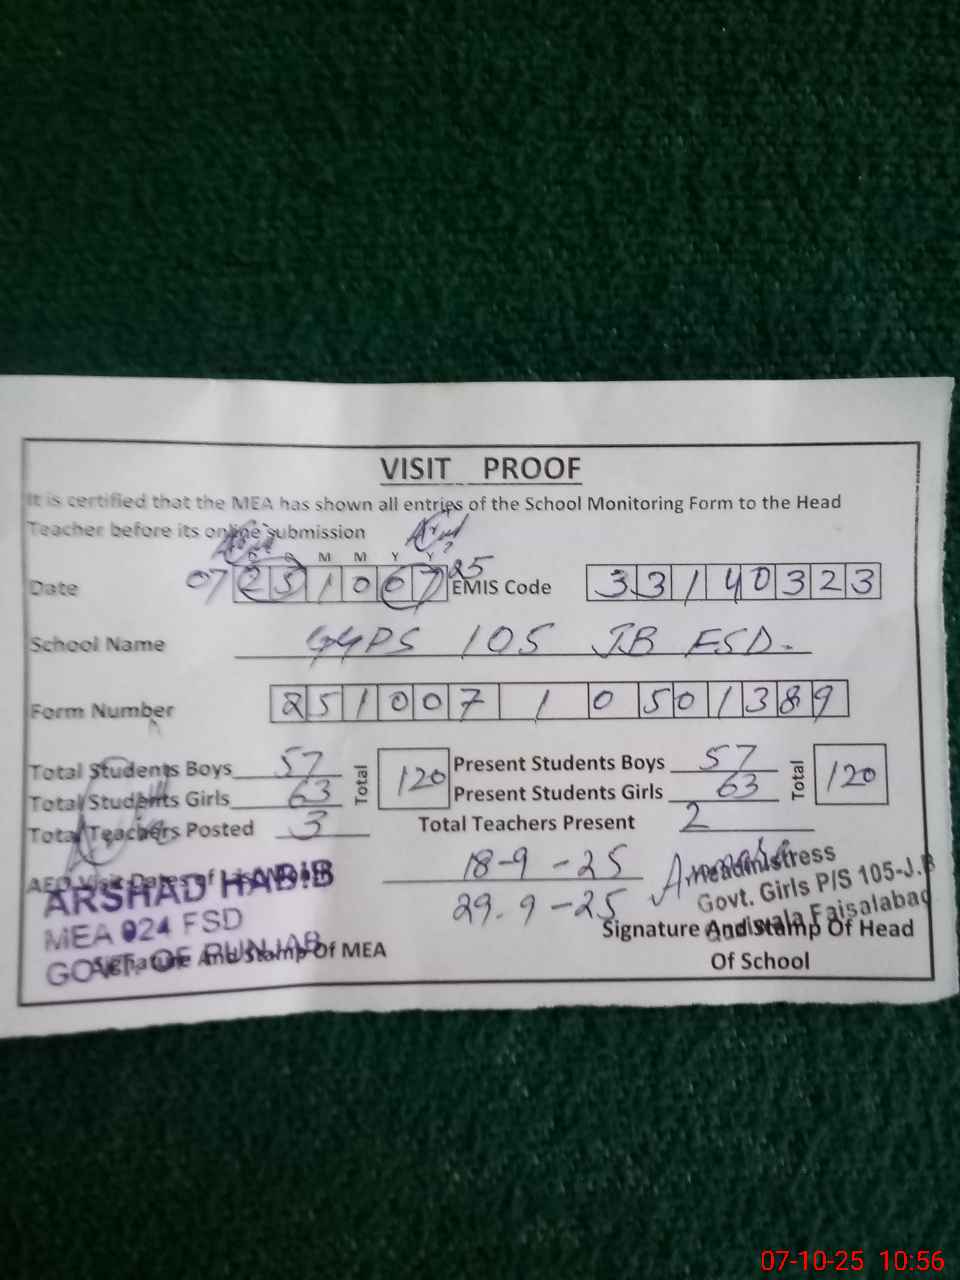 VISIT PROOF
It is certified that the MEA has shown all entries of the School Monitoring Form to the Head
Teacher before its online submission
D D M M Y Y
Date 07 25 10 07 25 EMIS Code 33140323
School Name GGPS 105 JB FSD.
Form Number 251007 1 0 501389
Total Students Boys 57 Total 120 Present Students Boys 57 Total 120
Total Students Girls 63 Present Students Girls 63
Total Teachers Posted 3 Total Teachers Present 2
AEO Visit Dates of 18-9-25
29.9-25
ARSHAD HABIB
MEA 024 FSD
GOVT. OF PUNJAB
Signature And Stamp Of MEA
Headmistress
Govt. Girls P/S 105-J.B
Faisalabad
Signature And Stamp Of Head
Of School
07-10-25 10:56